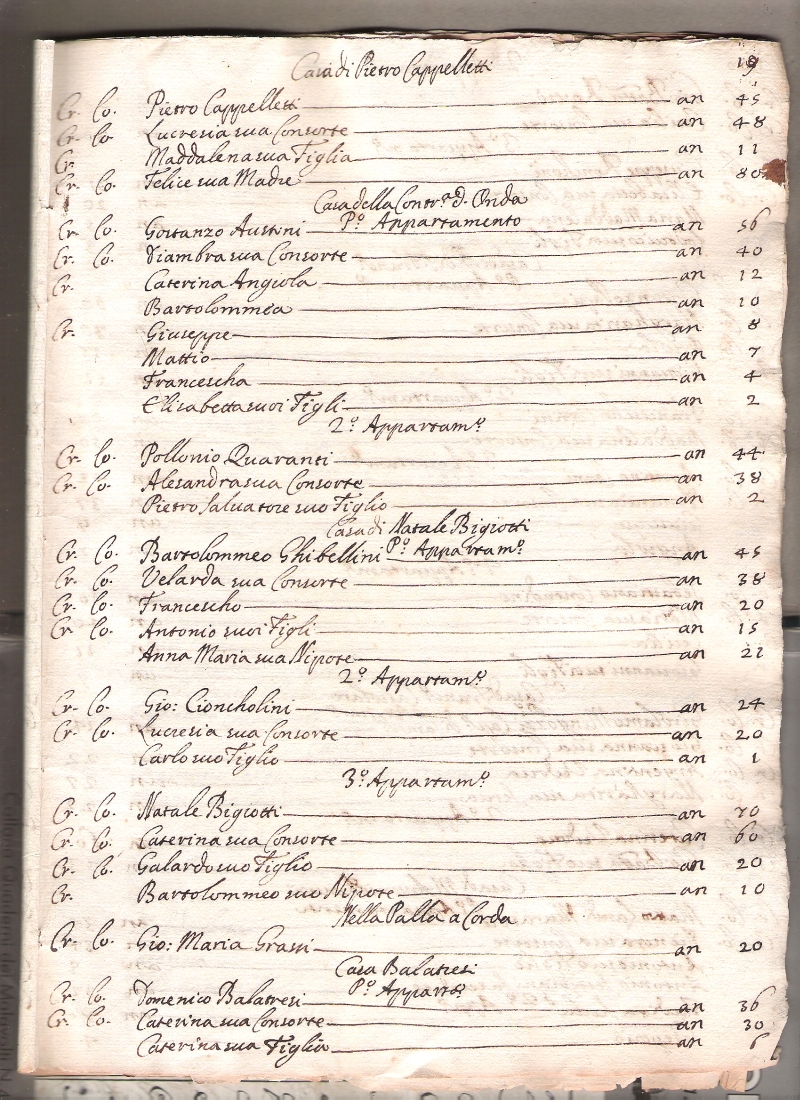 19
Casa di Pietro Cappelletti
Cr. Co. Pietro Cappelletti an 45
Cr. Co. Lucresia sua Consorte an 48
Cr. Maddalena sua Figlia an 11
Cr. Co. Felice sua Madre an 80
Casa della Contr.a d. Onda
P.o Appartamento
Cr. Co. Gostanzo Austini an 56
Cr. Co. Diambra sua Consorte an 40
Cr. Caterina Angiola an 12
Bartolommea an 10
Cr. Giuseppe an 8
Mattio an 7
Francescha an 4
Elisabetta suoi Figli an 2
2.o Appartam.o
Cr. Co. Pollonio Quaranti an 44
Cr. Co. Alesandra sua Consorte an 38
Pietro Salvatore suo Figlio an 2
Casa di Natale Bigiotti
P.o Appartam.o
Cr. Co. Bartolommeo Ghibellini an 45
Cr. Co. Velarda sua Consorte an 38
Cr. Co. Francescho an 20
Cr. Co. Antonio suoi Figli an 15
Anna Maria sua Nipote an 21
2.o Appartam.o
Cr. Co. Gio: Cioncholini an 24
Cr. Co. Lucresia sua Consorte an 20
Carlo suo Figlio an 1
3.o Appartam.o
Cr. Co. Natale Bigiotti an 70
Cr. Co. Caterina sua Consorte an 60
Cr. Co. Galardo suo Figlio an 20
Cr. Bartolommeo suo Nipote an 10
Nella Palla a Corda
Cr. Co. Gio: Maria Grassi an 20
Casa Balatresi
P.o Appart.o
Cr. Co. Domenico Balatresi an 36
Cr. Co. Caterina sua Consorte an 30
Caterina sua Figlia an 6